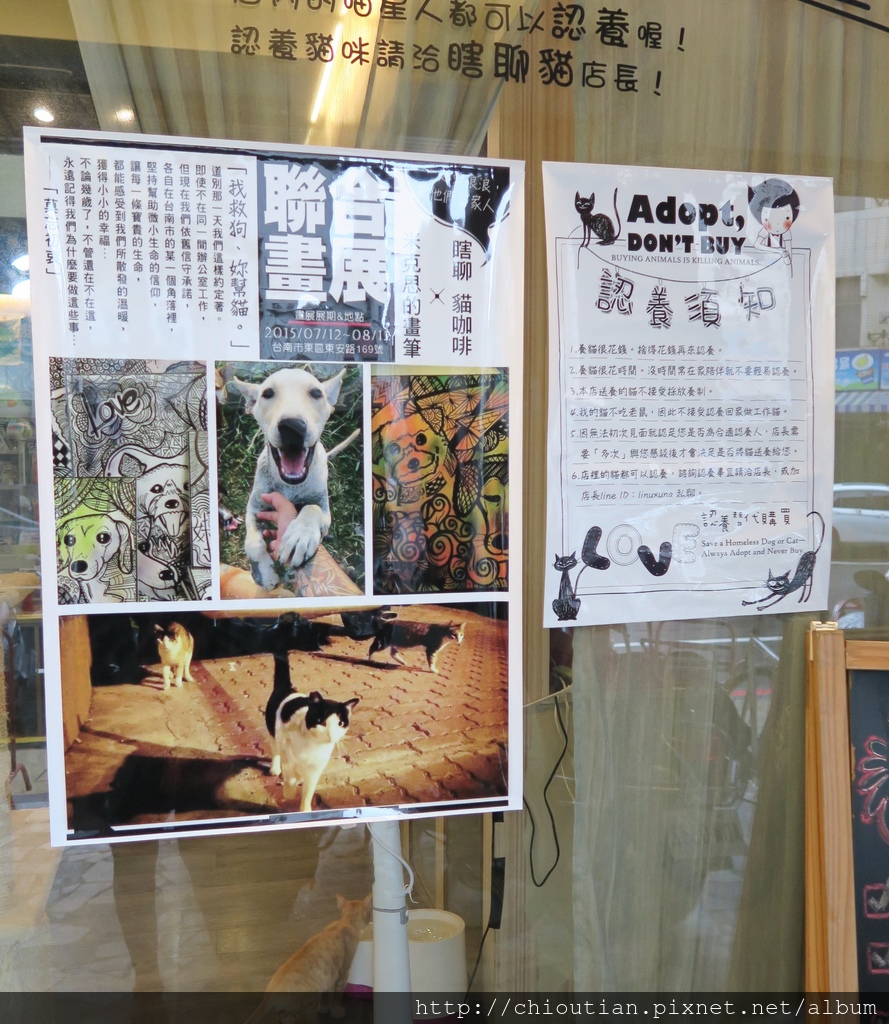 店內的喵星人都可以認養喔！
認養貓咪請洽瞎聊貓店長！
聯合
畫展
瞎聊 貓咖啡
×
米克風的畫筆
畫展展期&地點
2015/07/12~08/12
台南市東區東安路169號
「我救狗、妳幫貓。」
道別那一天我們這樣約定著。
即使不在同一間辦公室工作，
但現在我們依舊信守承諾，
各自在台南市的某一個角落裡，
堅持幫助微小生命的信仰
讓每一條寶貴的生命，
都能感受到我們所散發的溫暖，
獲得小小的幸福…
不論幾歲了，不管還在不在這，
永遠記得我們為什麼要做這些事…
Love
Adopt,
DON'T BUY
BUYING ANIMALS IS KILLING ANIMALS.
認養須知
1.養貓很花錢。捨得花錢再來認養。
2.養貓很花時間。沒時間常在家陪伴就不要輕易認養。
3.本店送養的貓不接受採放養制。
4.我的貓不吃老鼠，因此不接受認養回家做工作貓。
5.因無法初次見面就認定您是否為合適認養人，店長需
要「多次」與您懇談後才會決定是否將貓送養給您。
6.店裡的貓都可以認養，諮詢認養事宜請洽店長，或加
店長line ID：linuxuno 私聊。
LOVE
認養替代購買
Save a Homeless Dog or Cat—
Always Adopt and Never Buy.
http://chioutian.pixnet.net/album